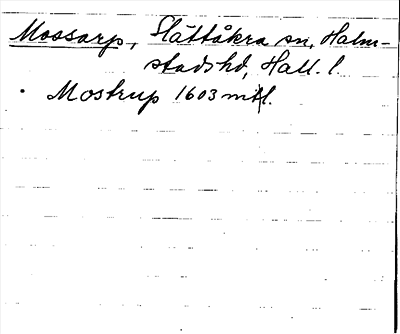 Mossarp, Slättåkra sn, Halm-
stads hd, Hall. l.
Mostrup 1603 mtl.